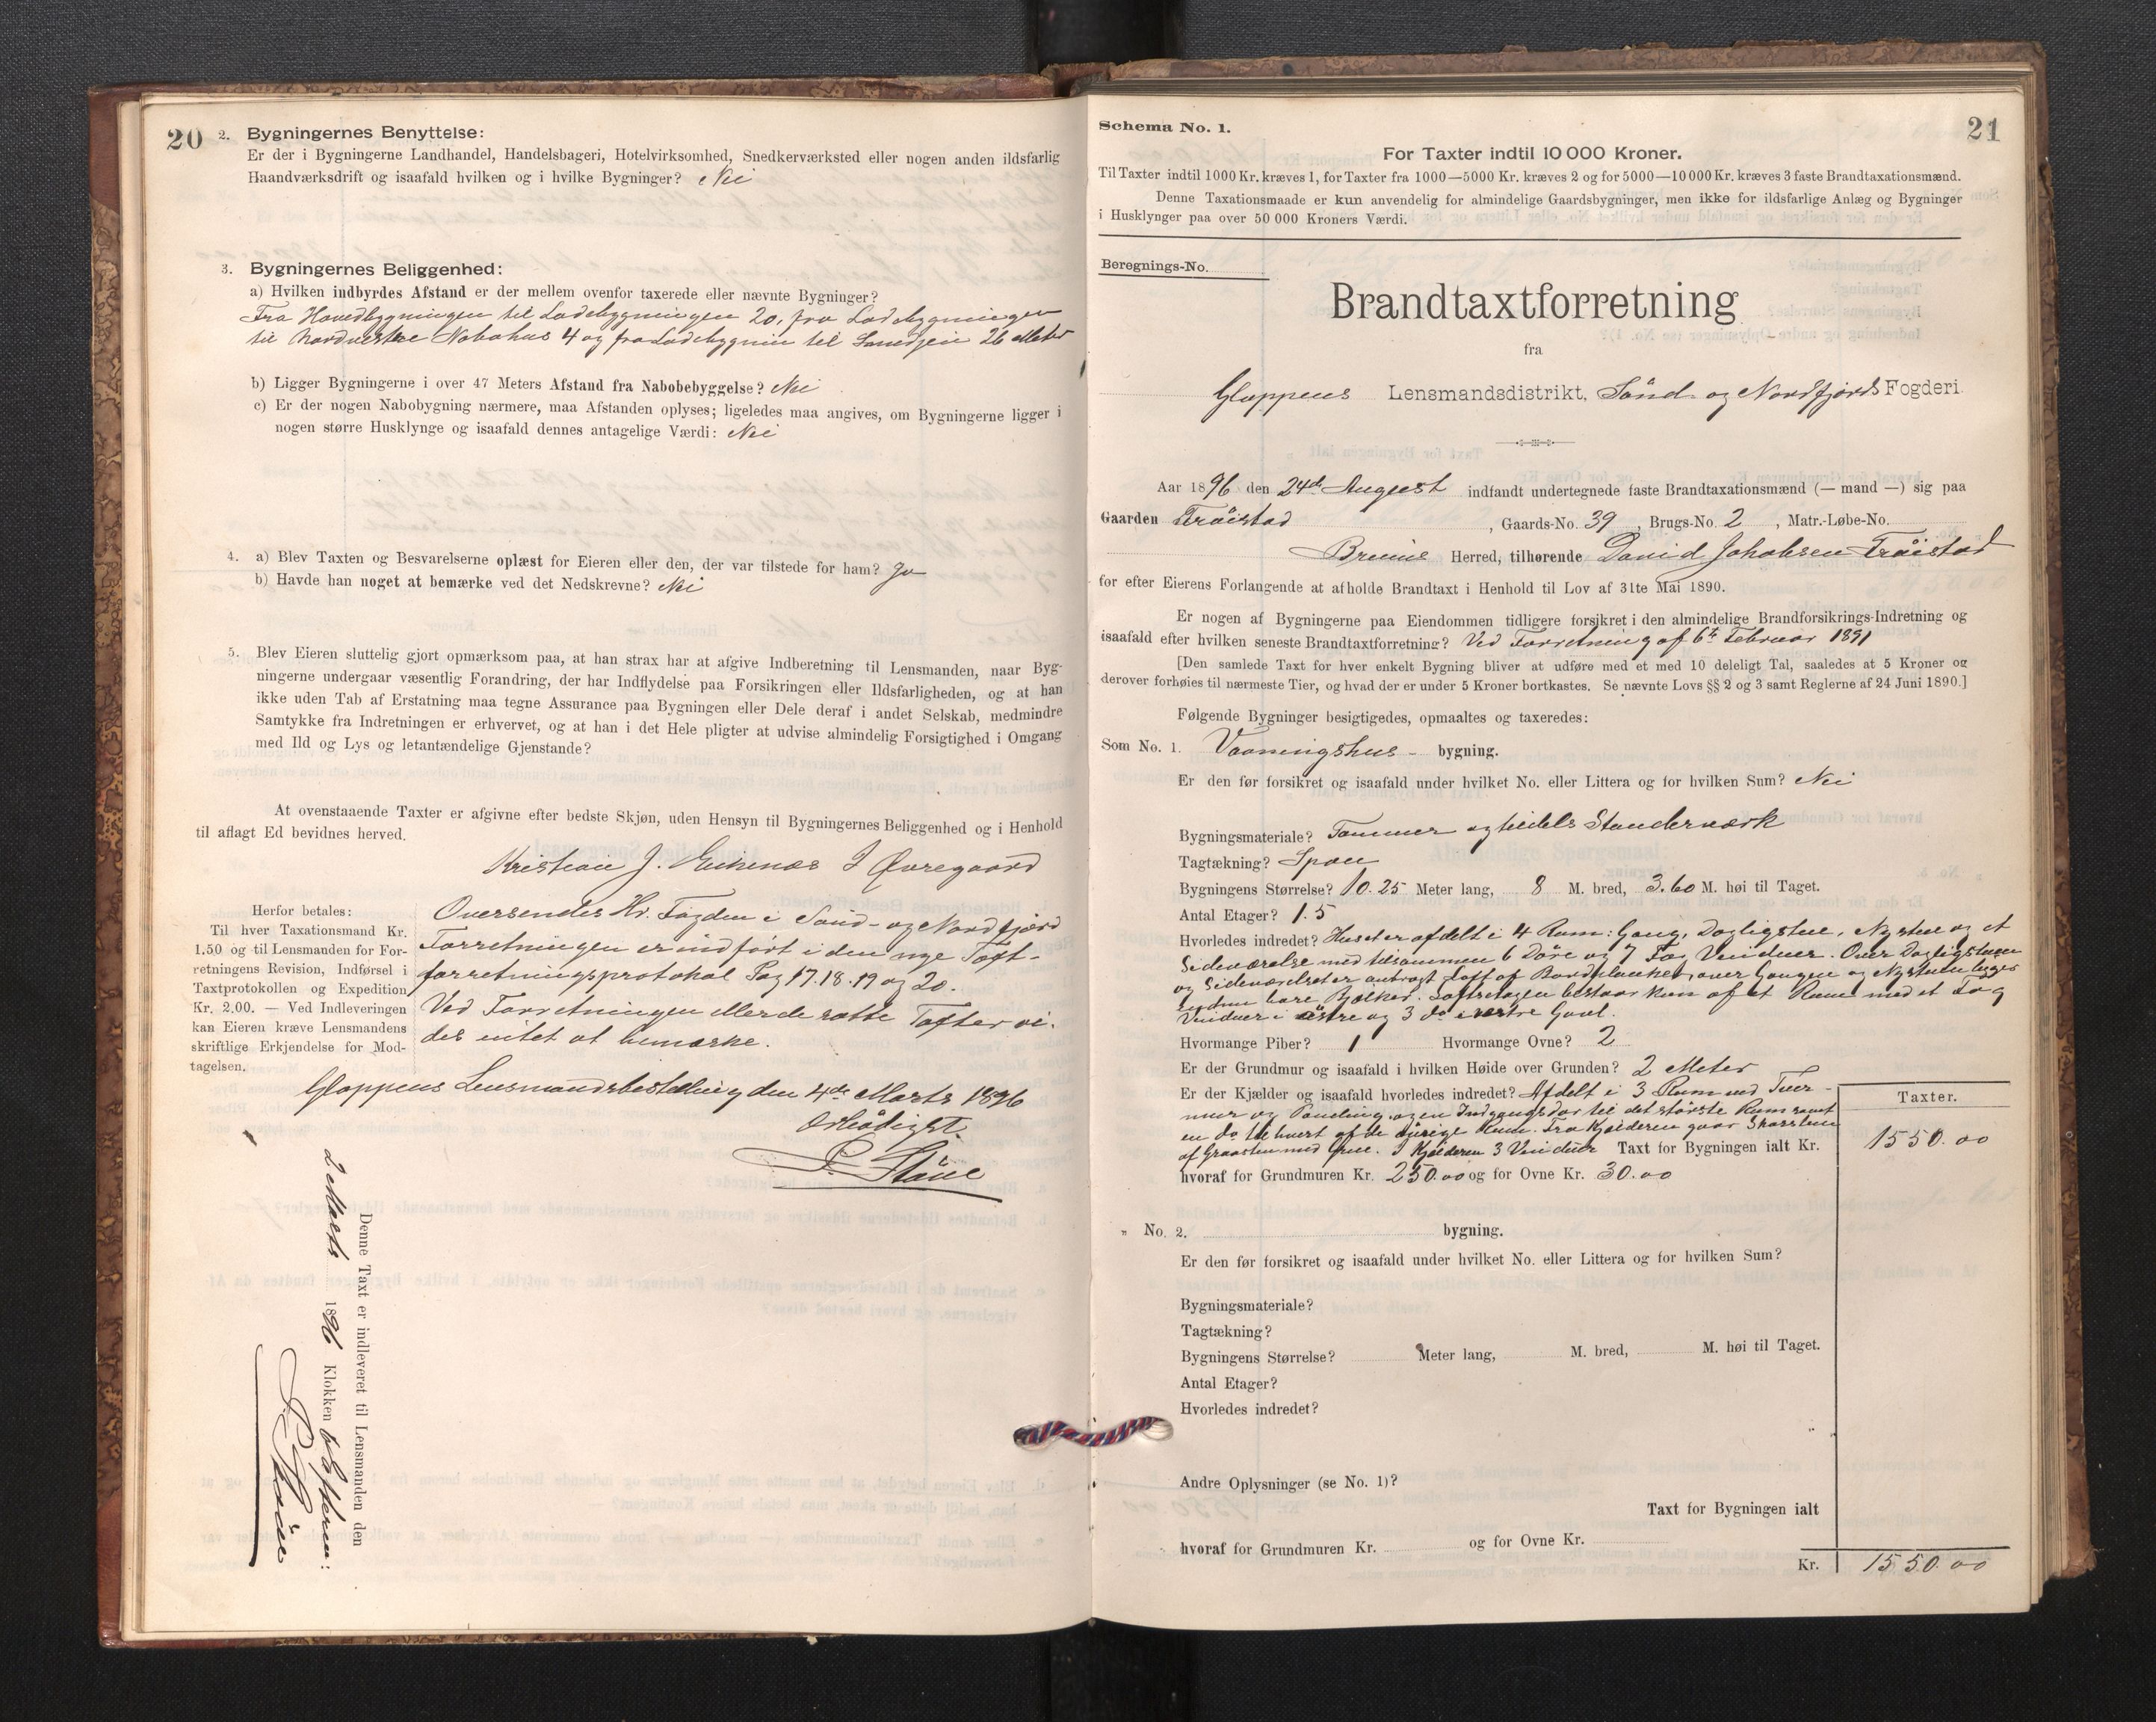 20
2. Bygningernes Benyttelse:
Er der i Bygningerne Landhandel, Handelsbageri, Hotelvirksomhed, Snedkerværksted eller nogen anden ildsfarlig
Haandværksdrift og isaafald hvilken og i hvilke Bygninger? Nei
3. Bygningernes Beliggenhed:
a) Hvilken indbyrdes Afstand er der mellem ovenfor taxerede eller nævnte Bygninger?
Fra Hovedbygningen til Ladebygningen 20, fra Ladebygningen
til nordvestre Nabohus 4 og fra Ladebygnin til 26 Meter
b) Ligger Bygningerne i over 47 Meters Afstand fra Nabobebyggelse? Nei
c) Er der nogen Nabobygning nærmere, maa Afstanden oplyses; ligeledes maa angives, om Bygningerne ligger i
nogen større Husklynge og isaafald dennes antagelige Værdi: Nei
4. a) Blev Taxten og Besvarelserne oplæst for Eieren eller den, der var tilstede for ham? Ja
b) Havde han noget at bemærke ved det Nedskrevne? Nei
5. Blev Eieren sluttelig gjort opmærksom paa, at han strax har at afgive Indberetning til Lensmanden, naar Byg-
ningerne undergaar væsentlig Forandring, der har Indflydelse paa Forsikringen eller Ildsfarligheden, og at han
ikke uden Tab af Erstatning maa tegne Assurance paa Bygningen eller Dele deraf i andet Selskab, medmindre
Samtykke fra Indretningen er erhvervet, og at han i det Hele pligter at udvise almindelig Forsigtighed i Omgang
med Ild og Lys og letantændelige Gjenstande?
At ovenstaaende Taxter er afgivne efter bedste Skjøn, uden Hensyn til Bygningernes Beliggenhed og i Henhold
til aflagt Ed bevidnes herved.
Kristian J. Eikenæs J Øvregaard
Herfor betales:
Til hver Taxationsmand Kr.
1.50 og til Lensmanden for For-
retningens Revision, Indførsel i
Taxtprotokollen og Expedition
Kr. 2.00. — Ved Indleveringen
kan Eieren kræve Lensmandens
skriftlige Erkjendelse for Mod-
tagelsen.
Oversendes Hr. Fogden i Sønd- og Nordfjord
Forretningen er indført i den nye Taxt-
forretningsprotokol Pag 17.18.19 og 20.
Ved Forretningen eller de satte Taxter vi-
des intet at bemærke.
Gloppens Lensmandsbestilling den 4de Marts 1896
Ærbødigst
Denne Taxt er indleveret til Lensmanden den
2 Marts 1896 Klokken 6 Efterm:
21
Schema No. 1.
For Taxter indtil 10 000 Kroner.
Til Taxter indtil 1000 Kr. kræves 1, for Taxter fra 1000—5000 Kr. kræves 2 og for 5000—10 000 Kr. kræves 3 faste Brandtaxationsmænd.
Denne Taxationsmaade er kun anvendelig for almindelige Gaardsbygninger, men ikke for ildsfarlige Anlæg og Bygninger
i Husklynger paa over 50 000 Kroners Værdi.
Beregnings-No.
Brandtaxtforretning
fra
Gloppens Lensmandsdistrikt, Sönd- og Nordfjords Fogderi
Aar 1896 den 24de August indfandt undertegnede faste Brandtaxationsmænd (— mand —) sig paa
Gaarden Tröistad, Gaards-No. 39, Brugs-No. 2, Matr.-Løbe-No.
Breims Herred, tilhørende David Jakobsen Tröistad
for efter Eierens Forlangende at afholde Brandtaxt i Henhold til Lov af 31te Mai 1890.
Er nogen af Bygningerne paa Eiendommen tidligere forsikret i den almindelige Brandforsikrings-Indretning og
isaafald efter hvilken seneste Brandtaxtforretning? Ved Forretning af 6te Februar 1891
[Den samlede Taxt for hver enkelt Bygning bliver at udføre med et med 10 deleligt Tal, saaledes at 5 Kroner og
derover forhøies til nærmeste Tier, og hvad der er under 5 Kroner bortkastes. Se nævnte Lovs §§ 2 og 3 samt Reglerne af 24 Juni 1890.]
Følgende Bygninger besigtigedes, opmaaltes og taxeredes:
Som No. 1. Vaaningshus- bygning.
Er den før forsikret og isaafald under hvilket No. eller Littera og for hvilken Sum? Nei
Bygningsmateriale? Tømmer og tildels Standerværk
Tagtækning? Spon
Bygningens Størrelse? 10.25 Meter lang, 8 M. bred, 3.60 M. høi til Taget.
Antal Etager? 1.5
Hvorledes indredet? Huset er afdelt i 4 Rum: Gang, Dagligstue, Nystue og et
Sideværelse med tilsammen 6 Döre og 7 Fag Vinduer. Over Dagligstuen
og Sideværelset er anbragt Loft af Bordplanker, over Gangen og Nystuen ligger
endnu bare Bjælker. Loftsetagen bestaar kun af et Rum med et Fag
Vinduer i östre og 3 do i vestre Gavl.
Hvormange Piber? 1 Hvormange Ovne? 2
Er der Grundmur og isaafald i hvilken Høide over Grunden? 2 Meter
Er der Kjælder og isaafald hvorledes indredet? Afdelt i 3 Rum ved Tver-
mur og Paneling og en Indgangsdør til det störste Rum samt
en do til hvert af de övrige Rum. Fra Kjælderen gaar Skorsten
af Graasten med Grue. I Kjælderen 3 Vinduer Taxt for Bygningen ialt Kr.
Taxter.
1550.00
hvoraf for Grundmuren Kr. 250.00 og for Ovne Kr. 30.00
„ No. 2. bygning.
Er den før forsikret og isaafald under hvilket No. eller Littera og for hvilken Sum?
Bygningsmateriale?
Tagtækning?
Bygningens Størrelse? Meter lang, M. bred, M. høi til Taget.
Antal Etager?
Hvorledes indredet?
Andre Oplysninger (se No. 1)?
Taxt for Bygningen ialt
hvoraf for Grundmuren Kr. og for Ovne Kr.
Kr. 1550.00